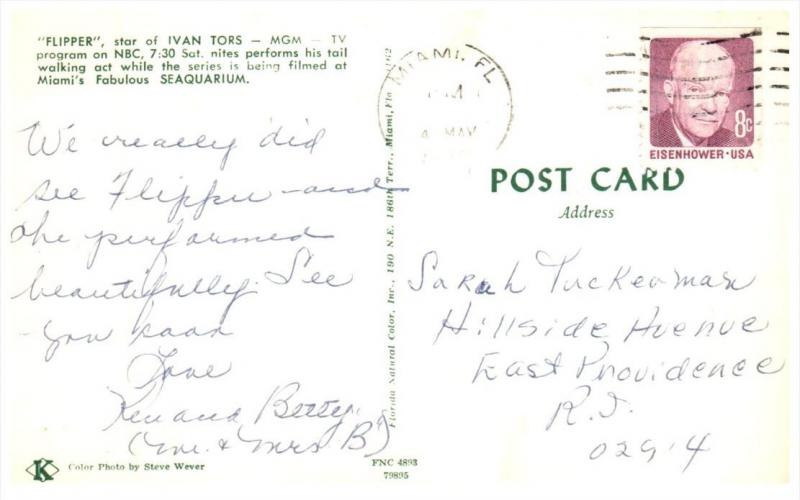 "FLIPPER", star of IVAN TORS — MGM — TV
program on NBC, 7:30 Sat. nites performs his tail
walking act while the series is being filmed at
Miami's Fabulous SEAQUARIUM.
We really did
see Flipper — and
she performed
beautifully. See
you soon
Love
Ken and Betty
(Mr. & Mrs B)
Color Photo by Steve Wever
K
Florida Natural Color, Inc., 190 N.E. 186th Terr., Miami, Fla
FNC 4893
79895
MIAMI, FL
MAY
8c
EISENHOWER·USA
POST CARD
Address
Sarah Tuckerman
Hillside Avenue
East Providence
R.I.
02914